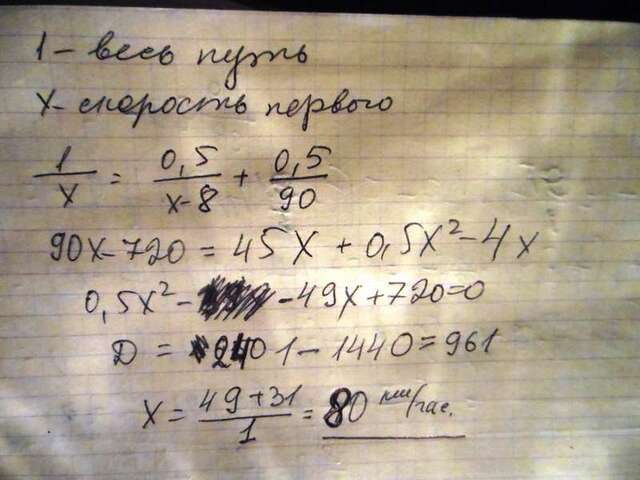 1 - весь путь
х - скорость первого
1/х = 0,5/х-8 + 0,5/90
90х - 720 = 45х + 0,5х² - 4х
0,5х² - - 49х + 720 = 0
Д = 2401 - 1440 = 961
х = 49+31/1 = 80 км/час.